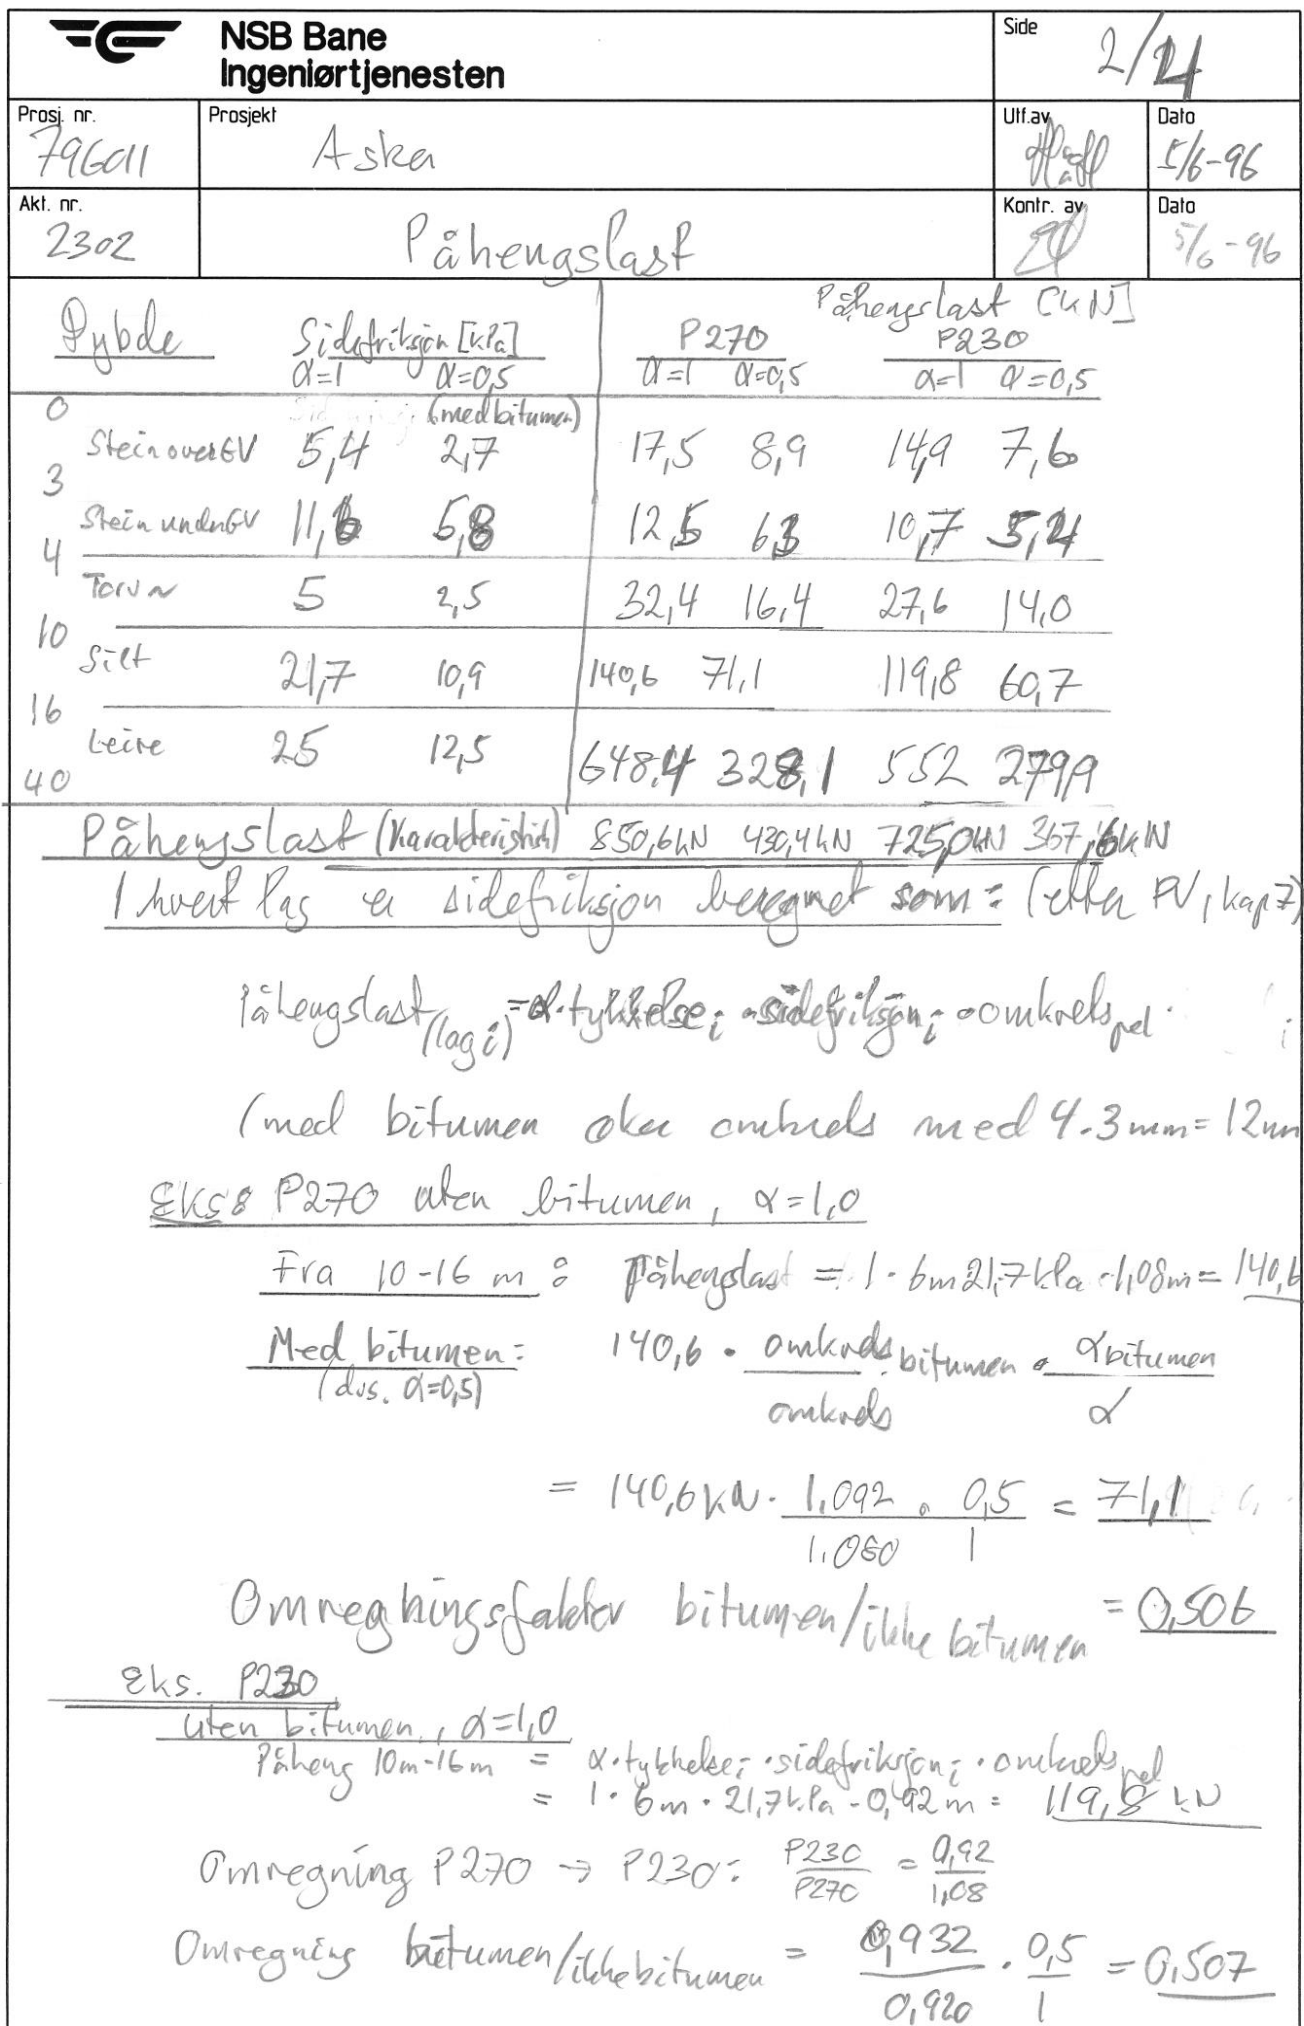 NSB Bane
Ingeniørtjenesten
Side
2/4
Prosj. nr.
796011
Prosjekt
Aska
Utf.av
Dato
5/6-96
Akt. nr.
2302
Påhengslast
Kontr. av
Dato
5/6-96
Påhengslast [kN]
Dybde Sidefriksjon [kPa] P270 P230
α=1 α=0,5 α=1 α=0,5 α=1 α=0,5
0 (med bitumen)
Stein over GV 5,4 2,7 17,5 8,9 14,9 7,6
3
Stein under GV 11,6 5,8 12,5 6,3 10,7 5,4
4
Torv 5 2,5 32,4 16,4 27,6 14,0
10
Silt 21,7 10,9 140,6 71,1 119,8 60,7
16
Leire 25 12,5 648,4 328,1 552 279,9
40
Påhengslast (karakteristisk) 850,6kN 430,4kN 725,0kN 367,6kN
I hvert lag er sidefriksjon beregnet som: (etter PV, kap 7)
Påhengslast (lag i) = α·tykkelse i · sidefriksjon i · omkrets pel
(med bitumen øker omkrets med 4·3mm = 12mm
Eks: P270 uten bitumen, α=1,0
Fra 10-16 m: Påhengslast = 1·6m 21,7kPa·1,08m = 140,6
Med bitumen: 140,6 · omkrets bitumen · α bitumen
(dvs. α=0,5) omkrets α
= 140,6 kN · 1,092 · 0,5 = 71,1
1,080 1
Omregningsfaktor bitumen/ikke bitumen = 0,506
Eks. P230
uten bitumen, α=1,0
Påheng 10m-16m = α·tykkelse i · sidefriksjon i · omkrets pel
= 1·6m·21,7kPa·0,92m = 119,8 kN
Omregning P270 → P230: P230 = 0,92
P270 1,08
Omregning bitumen/ikke bitumen = 0,932 · 0,5 = 0,507
0,920 1